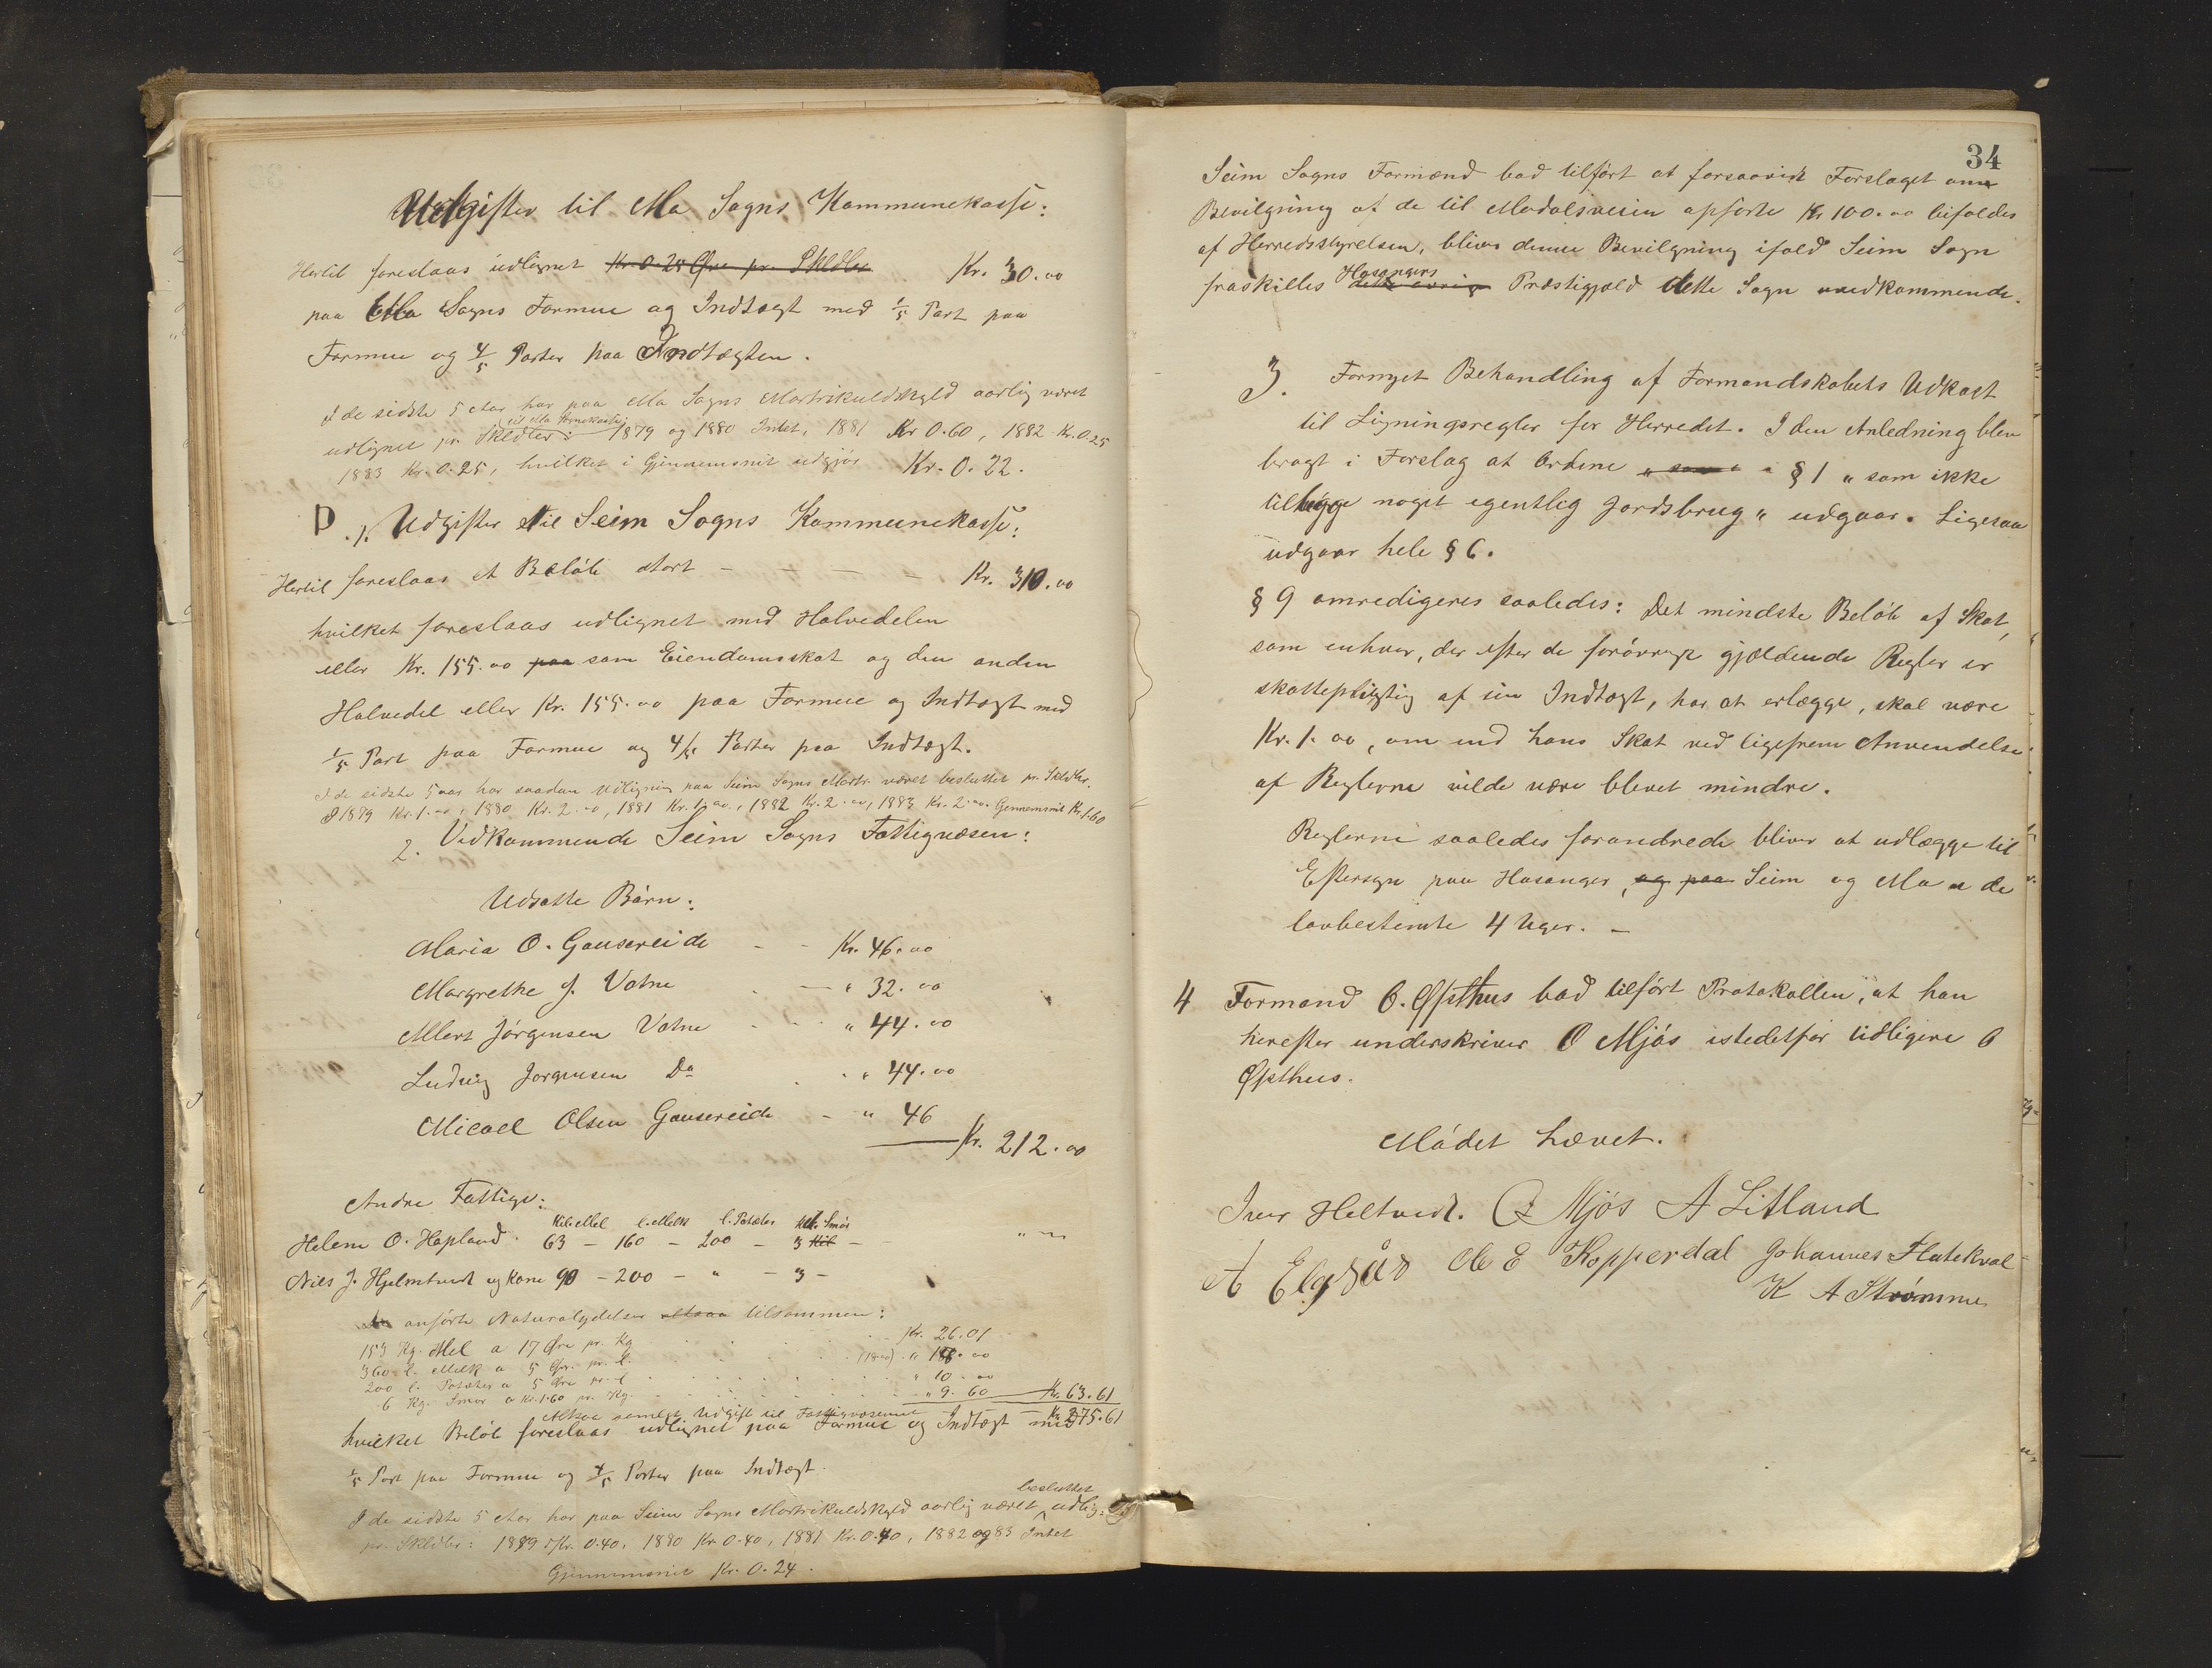 Udgifter til Mo Sogns Kommunekasse:
Hertil foreslaas udlignet Kr. 0.25 Øre pr. Skldlr Kr. 30.00
paa Mo Sogns Formue og Indtægt med 1/5 Part paa
Formue og 4/5 Parter paa Indtægten.
I de sidste 5 Aar har paa Mo Sogns Martrikulskyld aarlig været
udlignet pr Skldler: til Mo 1879 og 1880 Intet, 1881 Kr 0.60, 1882 Kr. 0.25
1883 Kr. 0.25, hvilket i Gjennemsnit udgjør Kr. 0.22.
D. 1. Udgifter til Seim Sogns Kommunekasse:
Hertil foreslaas et Beløb stort – – – – Kr. 310.00
hvilket foreslaas udlignet med Halvedelen
eller Kr. 155.00 paa som Eiendomsskat og den anden
Halvedel eller Kr. 155.00 paa Formue og Indtægt med
1/5 Part paa Formue og 4/5 Parter paa Indtægt.
I de sidste 5 aar har saadan Udligning paa Seim Sogns Martr. været besluttet pr. Skldlr.
I 1879 Kr. 1.00, 1880 Kr. 2.00, 1881 Kr. 1.00, 1882 Kr. 2.00, 1883 Kr. 2.00. Gennemsnit Kr. 1.60
2. Vedkommende Seim Sogns Fattigvæsen:
Udsatte Børn:
Maria O. Gausereide - - Kr. 46.00
Margrethe J. Votne - — " 32.00
Mllert Jørgensen Votne - - " 44.00
Ludvig Jorgensen Do - - " 44.00
Micael Olsen Gausereide - " 46
Kr. 212.00
Andre Fattige:
Kilo Mel l. Melk l. Poteter Kil. Smør
Helene O. Hopland. 63 – 160 – 200 – 3 Kil – " "
Nils J. Hjelmtveit og Kone 90 – 200 – " – 3 –
De anførte Naturalydelser altsaa tilsammen:
153 Kg. Mel a 17 Øre pr. Kg. Kr. 26.01
360 l. Melk a 5 Øre pr. l. (18.00) " 18.00
200 l. Poteter a 5 Øre pr. l. " 10.00
6 Kg. Smør a Kr. 1.60 pr. Kg. " 9.60 Kr. 63.61
Altsaa samlet Udgift til Fattigvæsenet – Kr. 275.61
hvilket Beløb foreslaas udlignet paa Formue og Indtægt med
1/5 Part paa Formue og 4/5 Parter paa Indtægt.
besluttet
I de sidste 5 Aar har paa Seim Sogns Martrikulskyld aarlig været udlig:
pr. Skldlr: 1879 Kr. 0.40, 1880 Kr 0.40, 1881 Kr. 0.40, 1882 og 83 Intet
Gjennemsnit Kr. 0.24.
34
Seim Sogns Formænd bad tilført at forsaavidt Forslaget om
Bevilgning af de til Modalsveien opførte Kr 100.00 bifaldes
af Herredsstyrelsen, bliver denne Bevilgning ifald Seim Sogn
Hosangers
fraskilles dette øvrige Præstigjæld dette Sogn uvedkommende.
3. Fornyet Behandling af Formandskabets Udkast
til Ligningsregler for Herredet. I den Anledning blev
bragt i Forslag at Ordene " som " i § 1 " som ikke
tillægge noget egentlig Jordsbrug " udgaar. Ligesaa
udgaar hele § 6.
§ 9 omredigeres saaledes: Det mindste Beløb af Skat,
som enhver, der efter de forøvrigt gjældende Regler er
skattepligtig af sin Indtægt, har at erlægge, skal være
Kr. 1.00, om end hans Skat ved ligefrem Anvendelse
af Reglerne vilde være blevet mindre.
Reglerne saaledes forandrede bliver at udlægge til
Eftersyn paa Hosanger, og paa Seim og Mo i de
lovbestemte 4 Uger. –
4 Formand O. Øpsthus bad tilført Protokollen, at han
herefter underskriver O Mjøs istedetfor tidligere O
Øpsthus.
Mødet hævet.
Iver Heltveit. O Mjøs A Litland
A Elgsås M E Kopperdal Johannes Flatekval
K A Strømme